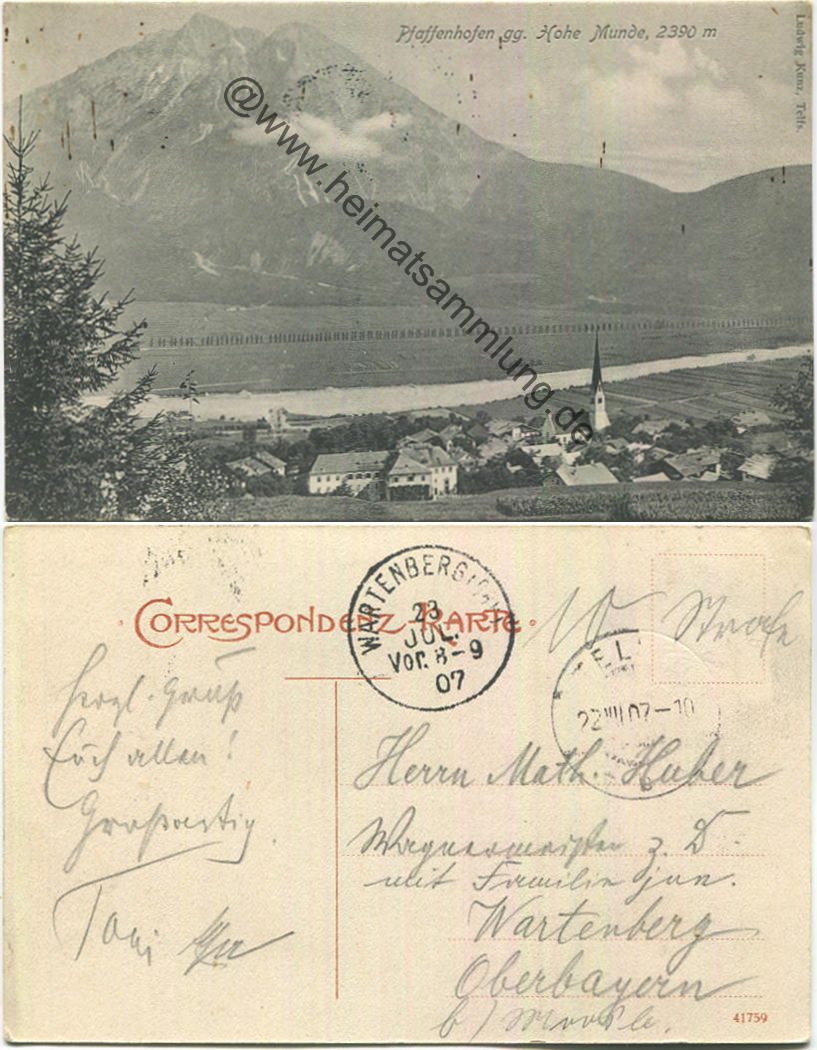 Pfaffenhofen gg. Hohe Munde, 2390 m
Ludwig Kunz, Telfs.
@www.heimatsammlung.de
CORRESPONDENZ-KARTE.
WARTENBERG
23
JUL.
Vor. 8-9
07
Strafe
07-10
herzl. Gruß
Euch allen!
Großartig.
Toni
Herrn Math. Huber
Wagnermeister z. D.
mit Familie jun.
Wartenberg
Oberbayern
b/
41759